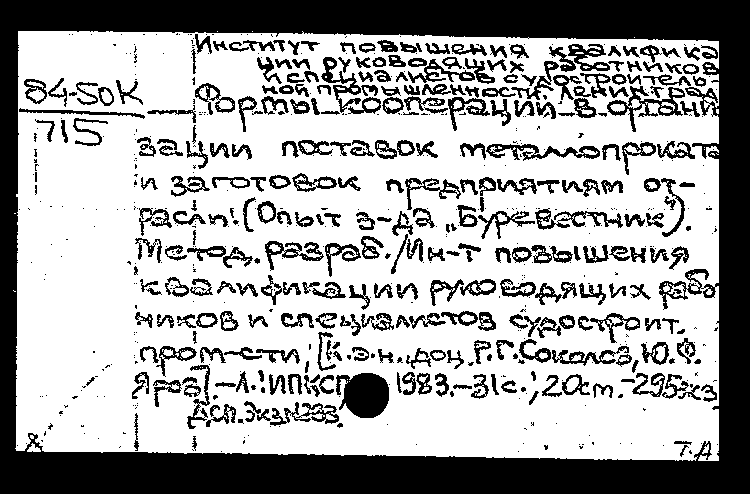 Институт повышения квалифика
ции руководящих работников
и специалистов судостроитель-
ной промышленности. Ленинград
84-50К
715
Формы кооперации в органи
зации поставок металлопроката
и заготовок предприятиям от-
расли: (Опыт з-да „Буревестник").
Метод. разраб. /Ин-т повышения
квалификации руководящих рабо
ников и специалистов судостроит.
пром-сти, [К.э.н., доц. Р.Г. Соколов, Ю.Ф.
Яров]. -Л.: ИПКСП 1983.-31с.; 20см.-295экз
ДСП. Экз №293.
Т.Д